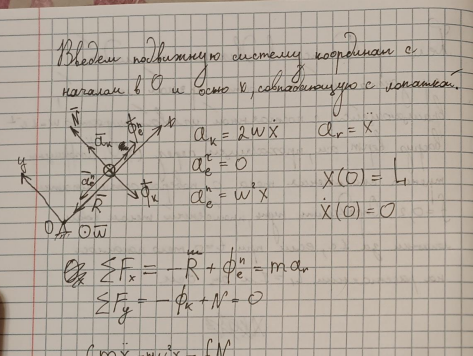 Введем подвижную систему координат с
началом в O и осью x, совпадающую с лопаткой.
N̄
ā_k
Φ̄_e^n
x
a_k = 2ωẋ
a_r = ẍ
y
ā_e^n
a_e^τ = 0
R̄
Φ̄_k
a_e^n = ω²x
x(0) = L
ẋ(0) = 0
O
ω̄
ΣF_x = -R + Φ_e^n = ma_r
ΣF_y = -Φ_k + N = 0